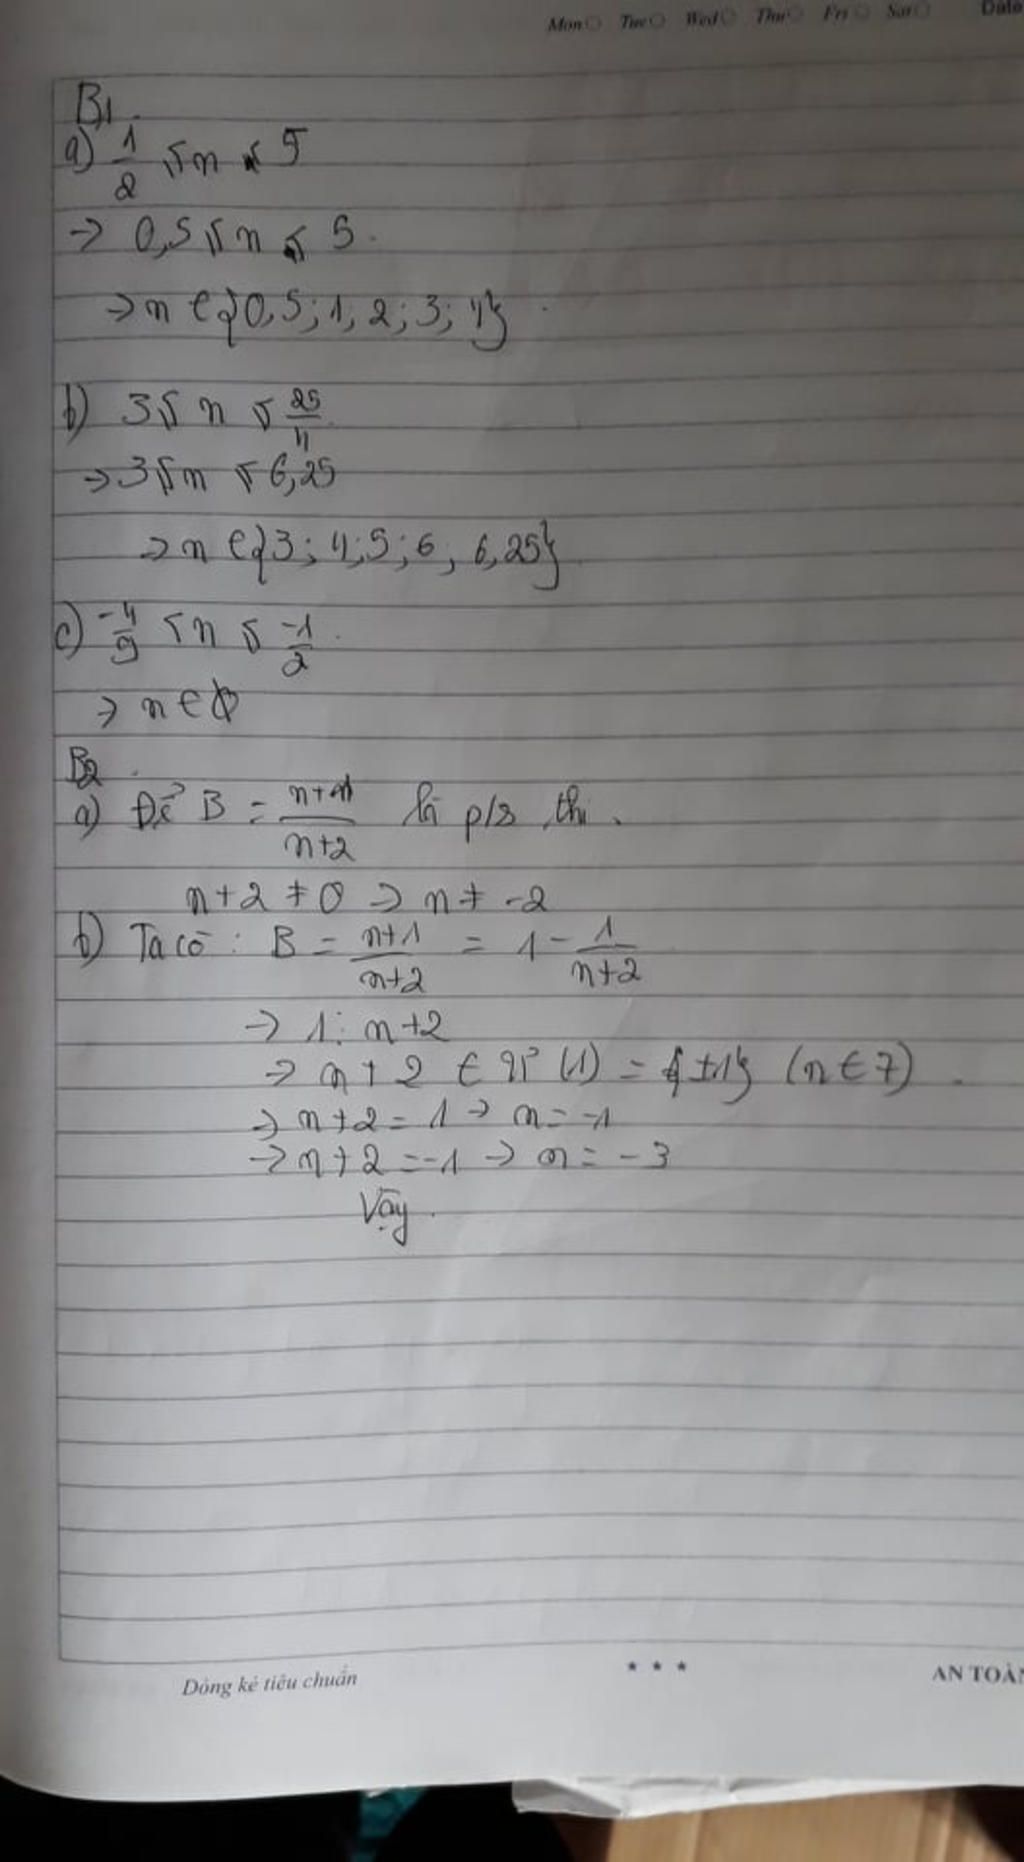 Mon Tue Wed Thu Fri Sat Date
B1.
a) 1/2 ≤ n < 5
→ 0,5 ≤ n ≤ 5.
→ n ∈ {0,5; 1; 2; 3; 4}.
b) 3 ≤ n ≤ 25/4
→ 3 ≤ n ≤ 6,25
→ n ∈ {3; 4; 5; 6; 6,25}
c) -4/9 ≤ n ≤ -1/2.
→ n ∈ ∅
B2.
a) Để B = n+1/n+2 là p/s thì.
n+2 ≠ 0 → n ≠ -2
b) Ta có: B = n+1/n+2 = 1 - 1/n+2
→ 1 ⋮ n+2
→ n + 2 ∈ Ư (1) = {±1} (n ∈ Z).
→ n+2 = 1 → n = -1
→ n+2 = -1 → n = -3
Vậy.
Dòng kẻ tiêu chuẩn
★ ★ ★
AN TOÀN